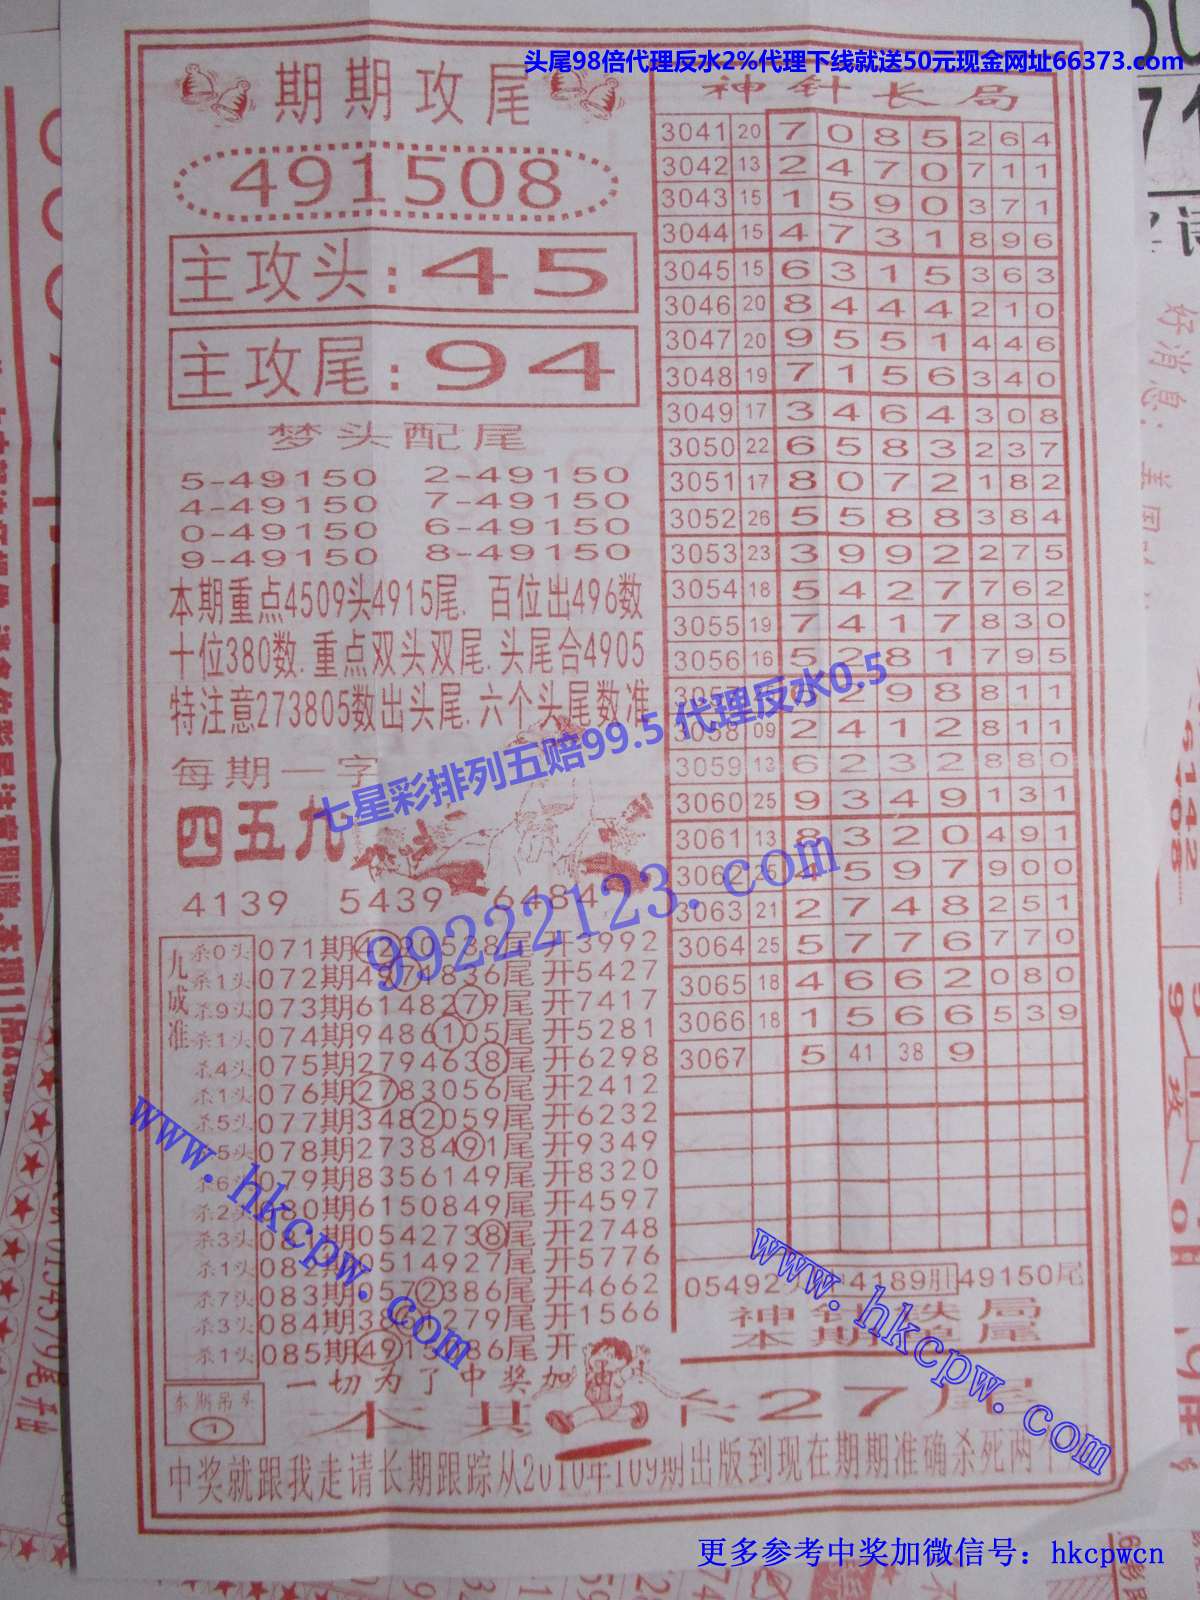 头尾98倍代理反水2%代理下线就送50元现金网址66373.com
期期攻尾
491508
主攻头:45
主攻尾:94
梦头配尾
5-49150 2-49150
4-49150 7-49150
0-49150 6-49150
9-49150 8-49150
本期重点4509头4915尾. 百位出496数
十位380数.重点双头双尾.头尾合4905
特注意273805数出头尾.六个头尾数准
每期一字
四五九
4139 5439 6484
九成准
杀0头 071期4290538尾 开3992
杀1头 072期4971836尾 开5427
杀9头 073期6148279尾 开7417
杀1头 074期9486105尾 开5281
杀4头 075期2794638尾 开6298
杀1头 076期2783056尾 开2412
杀5头 077期3482059尾 开6232
5头 078期2738491尾 开9349
杀6头 079期8356149尾 开8320
杀2头 080期6150849尾 开4597
杀3头 0542738尾 开2748
杀1头 082期0514927尾 开5776
杀7头 083期 572386尾 开4662
杀3头 084期 279尾 开1566
杀1头 085期4915 86尾 开
一切为了中奖加油
本期吊头
1
27尾
中奖就跟我走请长期跟踪从2010年109期出版到现在期期准确杀死两
神针长局
3041 20 7 0 8 5 2 6 4
3042 13 2 4 7 0 7 1 1
3043 15 1 5 9 0 3 7 1
3044 15 4 7 3 1 8 9 6
3045 15 6 3 1 5 3 6 3
3046 20 8 4 4 4 2 1 0
3047 20 9 5 5 1 4 4 6
3048 19 7 1 5 6 3 4 0
3049 17 3 4 6 4 3 0 8
3050 22 6 5 8 3 2 3 7
3051 17 8 0 7 2 1 8 2
3052 26 5 5 8 8 3 8 4
3053 23 3 9 9 2 2 7 5
3054 18 5 4 2 7 7 6 2
3055 19 7 4 1 7 8 3 0
3056 16 5 2 8 1 7 9 5
6 2 9 8 8 1 1
3058 09 2 4 1 2 8 1 1
3059 13 6 2 3 2 8 8 0
3060 25 9 3 4 9 1 3 1
3061 13 8 3 2 0 4 9 1
3062 25 4 5 9 7 9 0 0
3063 21 2 7 4 8 2 5 1
3064 25 5 7 7 6 7 7 0
3065 18 4 6 6 2 0 8 0
3066 18 1 5 6 6 5 3 9
3067 5 41 38 9
05492 4189胆 49150尾
七星彩排列五赔99.5 代理反水0.5
99222123.com
www.hkcpw.com
www.hkcpw.com
更多参考中奖加微信号：hkcpwcn